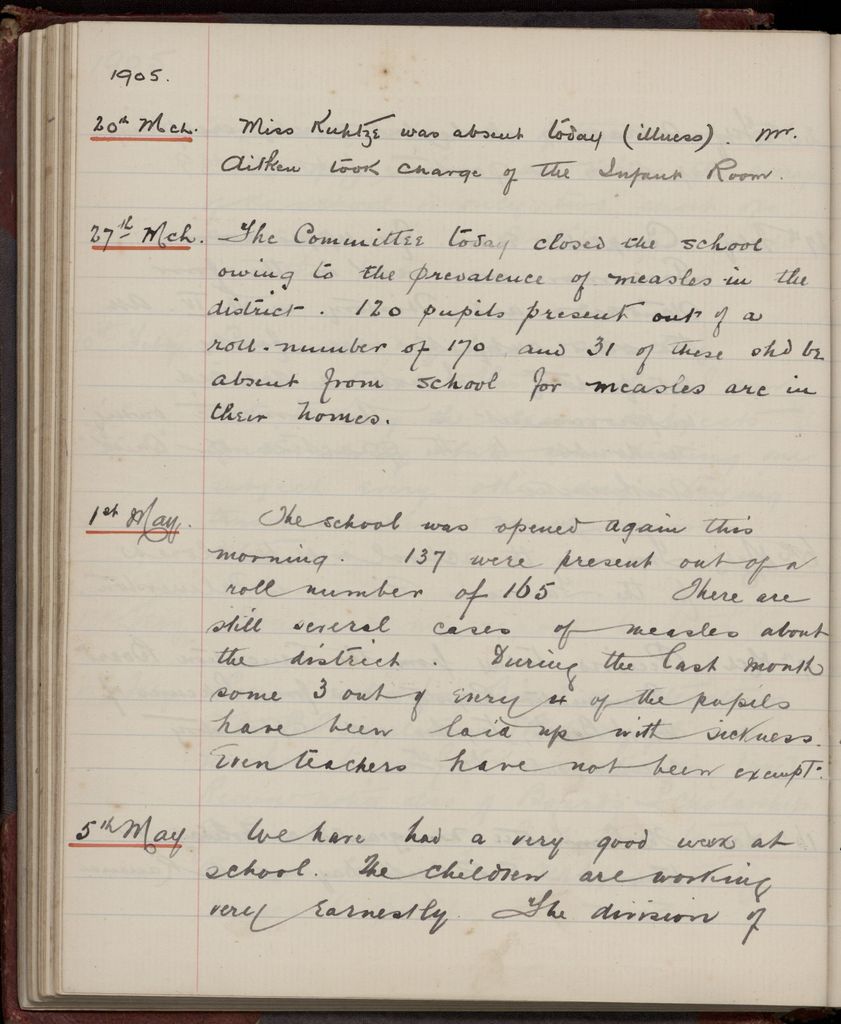 1905.
20th Mch. Miss Kuhtze was absent today (illness). Mr.
Aitken took charge of the Infant Room.
27th Mch. The Committee today closed the school
owing to the prevalence of measles in the
district. 120 pupils present out of a
roll-number of 170 and 31 of these shd be
absent from school for measles are in
their homes.
1st May. The school was opened again this
morning. 137 were present out of a
roll number of 165 There are
still several cases of measles about
the district. During the last month
some 3 out of every 4 of the pupils
have been laid up with sickness.
Even teachers have not been exempt.
5th May We have had a very good week at
school. The children are working
very earnestly. The division of